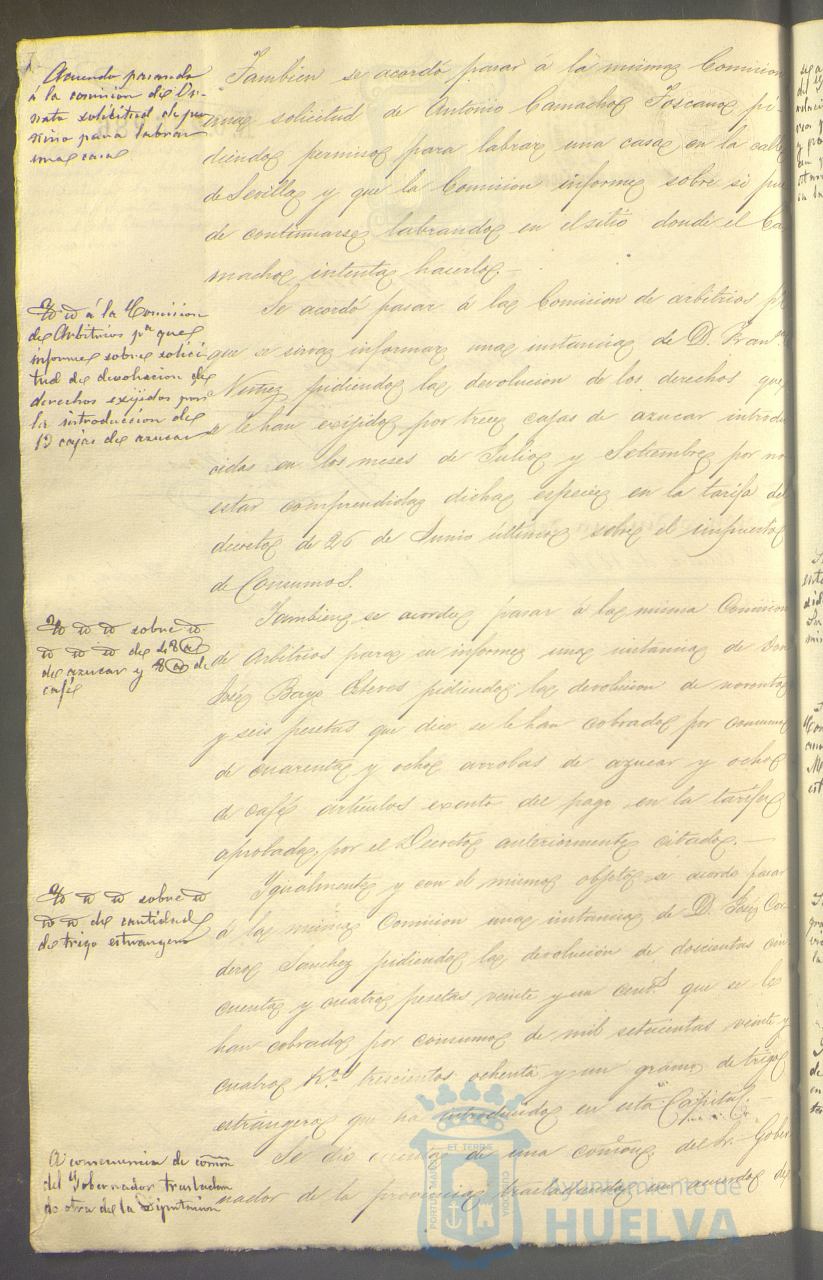 Acuerdo pasando
á la comision de Or-
nato solicitud de per
miso para labrar
una casa
Tambien se acordó pasar á la misma Comision
una solicitud de Antonio Camacho Toscano pi-
diendo permiso para labrar una casa en la calle
de Sevilla y que la Comision informe sobre si pue
de continuarse labrando en el sitio donde el Ca
macho intenta hacerlo.—
Yd id á la Comision
de Arbitrios pª que
informe sobre solici
tud de devolucion de
derechos exijidos por
la introduccion de
13 cajas de azucar
Se acordó pasar á la Comision de arbitrios pª
que se sirva informar una instancia de D. Fran.co
Nuñez pidiendo la devolucion de los derechos que
se le han exijido por trece cajas de azucar introdu
cidas en los meses de Julio y Setiembre por no
estar comprendida dicha especie en la tarifa del
decreto de 26 de Junio último sobre el impuesto
de Consumos.
Yd id id sobre id
id id id de 48 @
de azucar y 8 @ de
café
Tambien se acordó pasar á la misma Comision
de Arbitrios para su informe una instancia de Don
José Bayo Esteves pidiendo la devolucion de noventa
y seis pesetas que dice se le han cobrado por consumo
de cuarenta y ocho arrobas de azucar y ocho
de café artículos exento del pago en la tarifa
aprobada por el Decreto anteriormente citado.—
Yd id id sobre id
id id de cantidad
de trigo estrangero
Igualmente y con el mismo objeto se acordó pasar
á la misma Comision una instancia de D. José Cor
dero Sanchez pidiendo la devolucion de doscientas cin
cuenta y cuatro pesetas veinte y un cents. que se le
han cobrado por consumo de mil setecientos veinte y
cuatro K.os trescientos ochenta y un gramo de trigo
estrangero que ha introducido en esta Capital.—
A consecuencia de comon
del Gobernador trasladan
do otra de la Diputacion
Se dió cuenta de una comon. del Sr. Gober
nador de la provincia trasladando un acuerdo de
ET TERRAE
PORTUS MARIS
CUSTODIA
Ayuntamiento de
HUELVA